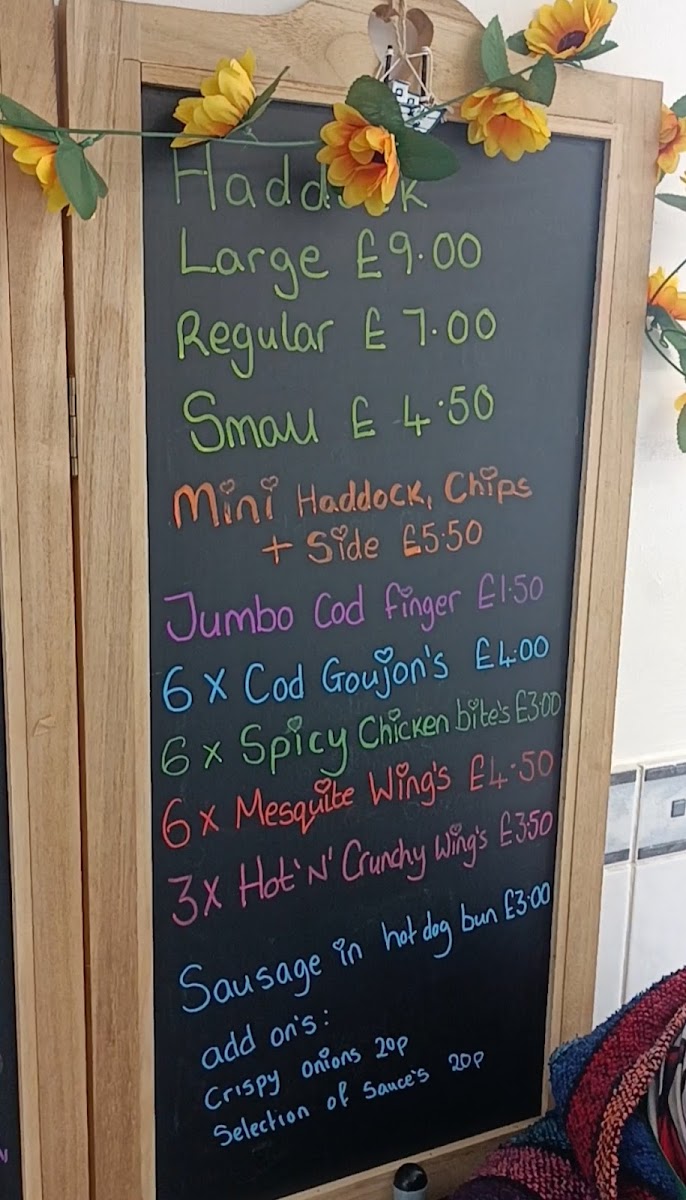 Haddock
Large £9.00
Regular £7.00
Small £4.50
Mini Haddock, Chips
+ Side £5.50
Jumbo Cod finger £1.50
6 x Cod Goujon's £4.00
6 x Spicy Chicken bite's £3.00
6 x Mesquite Wing's £4.50
3x Hot 'N' Crunchy Wing's £3.50
Sausage in hot dog bun £3.00
add on's:
Crispy onions 20p
Selection of Sauce's 20p